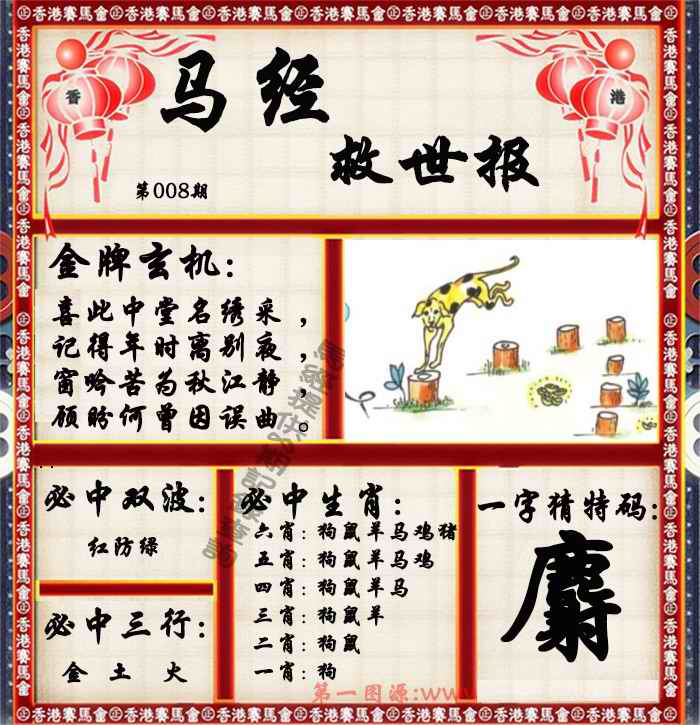 香港賽馬會
香
港
马经
救世报
第008期
金牌玄机：
喜此中堂名绣采，
记得年时离别夜，
窗吟苦为秋江静，
顾盼何曾因误曲。
必中双波：
红防绿
必中三行：
金 土 火
必中生肖：
六肖：狗鼠羊马鸡猪
五肖：狗鼠羊马鸡
四肖：狗鼠羊马
三肖：狗鼠羊
二肖：狗鼠
一肖：狗
一字猜特码：
麝
第一图源:www